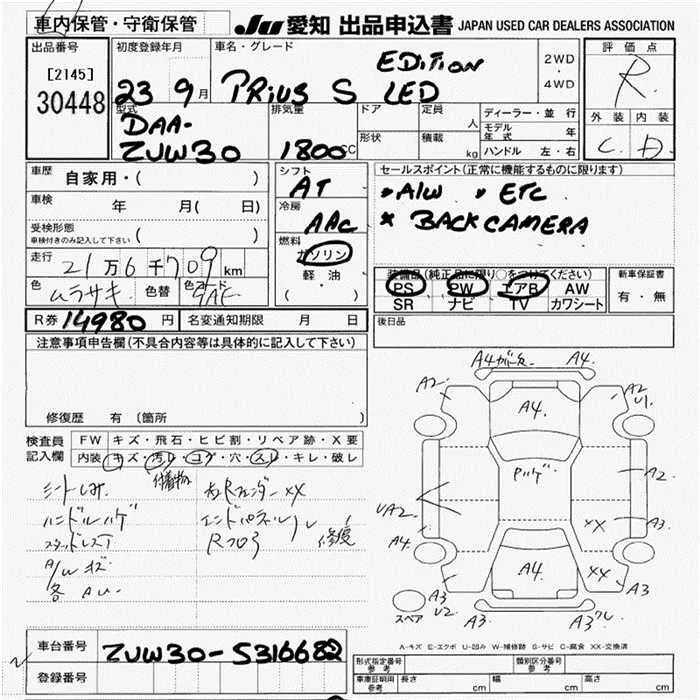 車内保管・守衛保管
JU 愛知 出品申込書 JAPAN USED CAR DEALERS ASSOCIATION
出品番号 初度登録年月 車名・グレード 評価点
[2145] EDITION 2WD
30448 23 9月 PRIUS S LED 4WD R
型式 排気量 ドア 定員 人 ディーラー・並行 外装 内装
DAA- 形状 積載 kg モデル年式 年 C D
ZVW30 1800cc ハンドル 左・右
車歴 自家用・( ) シフト セールスポイント(正常に機能するものに限ります)
AT * A/W * ETC
車検 年 月( 日) 冷房 * BACK CAMERA
AAC
受検形態
車検付きのみ記入して下さい ( ) 燃料
ガソリン
走行 21万6千709km 軽・油 装備品(純正品に限り○をつけてください) 新車保証書
( ) PS PW エアB AW 有・無
色 ムラサキ 色替 色コード SR ナビ TV カワシート
R券 14980円 名変通知期限 月 日 後日品
注意事項申告欄(不具合内容等は具体的に記入して下さい)
修復歴 有 〔箇所
検査員 FW キズ・飛石・ヒビ割・リペア跡・X要
記入欄 内装 キズ・汚レ・コゲ・穴・スレ・キレ・破レ
付着物
シートしみ 右Rフェンダー XX
ハンドルハゲ エンドパネル
スタッドレスT Rフロア 修復
A/Wキズ
各AU
A4 A4
A2 A4 A2
U1
Pハゲ
A2
UA2 XX A3
A4
A4 XX
A3 A3
U2 A3
スペア A3
A-キズ E-エクボ U-凹み W-補修跡 S-サビ C-腐食 XX-交換済
車台番号 ZVW30-5316682
登録番号
形式指定番号 参考 類別区分番号 参考
車庫証明用 参考 長さ cm 幅 cm 高さ cm